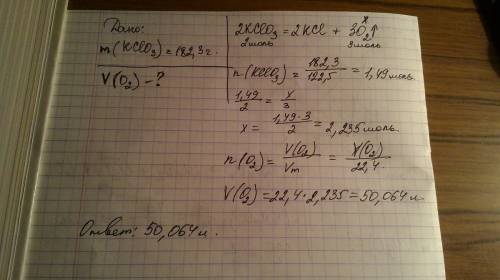 Дано:
m(KClO₃)=182,3г.
V(O₂)-?
2KClO₃ = 2KCl + 3O₂↑
x
2моль 3моль
n(KClO₃) = 182,3/122,5 = 1,49моль.
1,49/2 = x/3
x = 1,49·3/2 = 2,235моль.
n(O₂) = V(O₂)/Vm = V(O₂)/22,4.
V(O₂) = 22,4·2,235 = 50,064л.
Ответ: 50,064л.